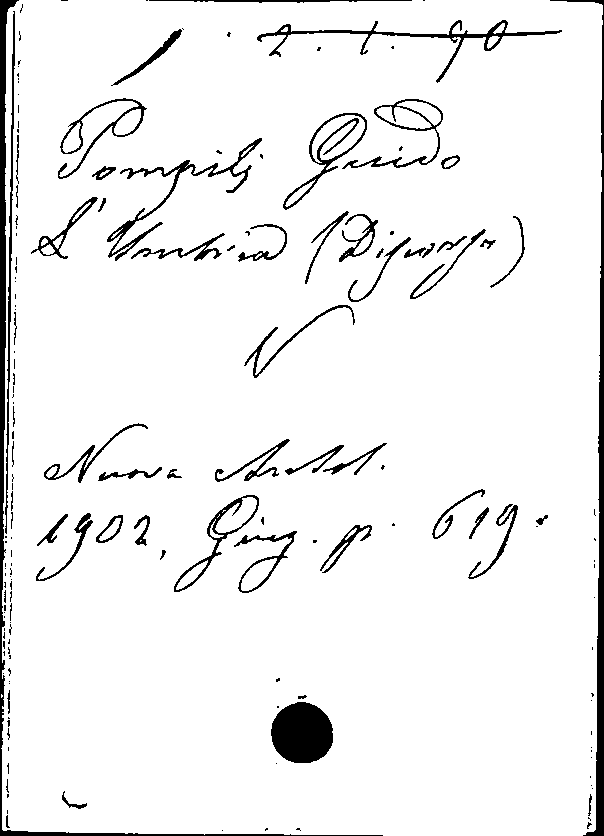 2.1.90
Pompilj Guido
L'Umbria (Discorso)
V
Nuova Antol.
1902, Giug. p. 619.